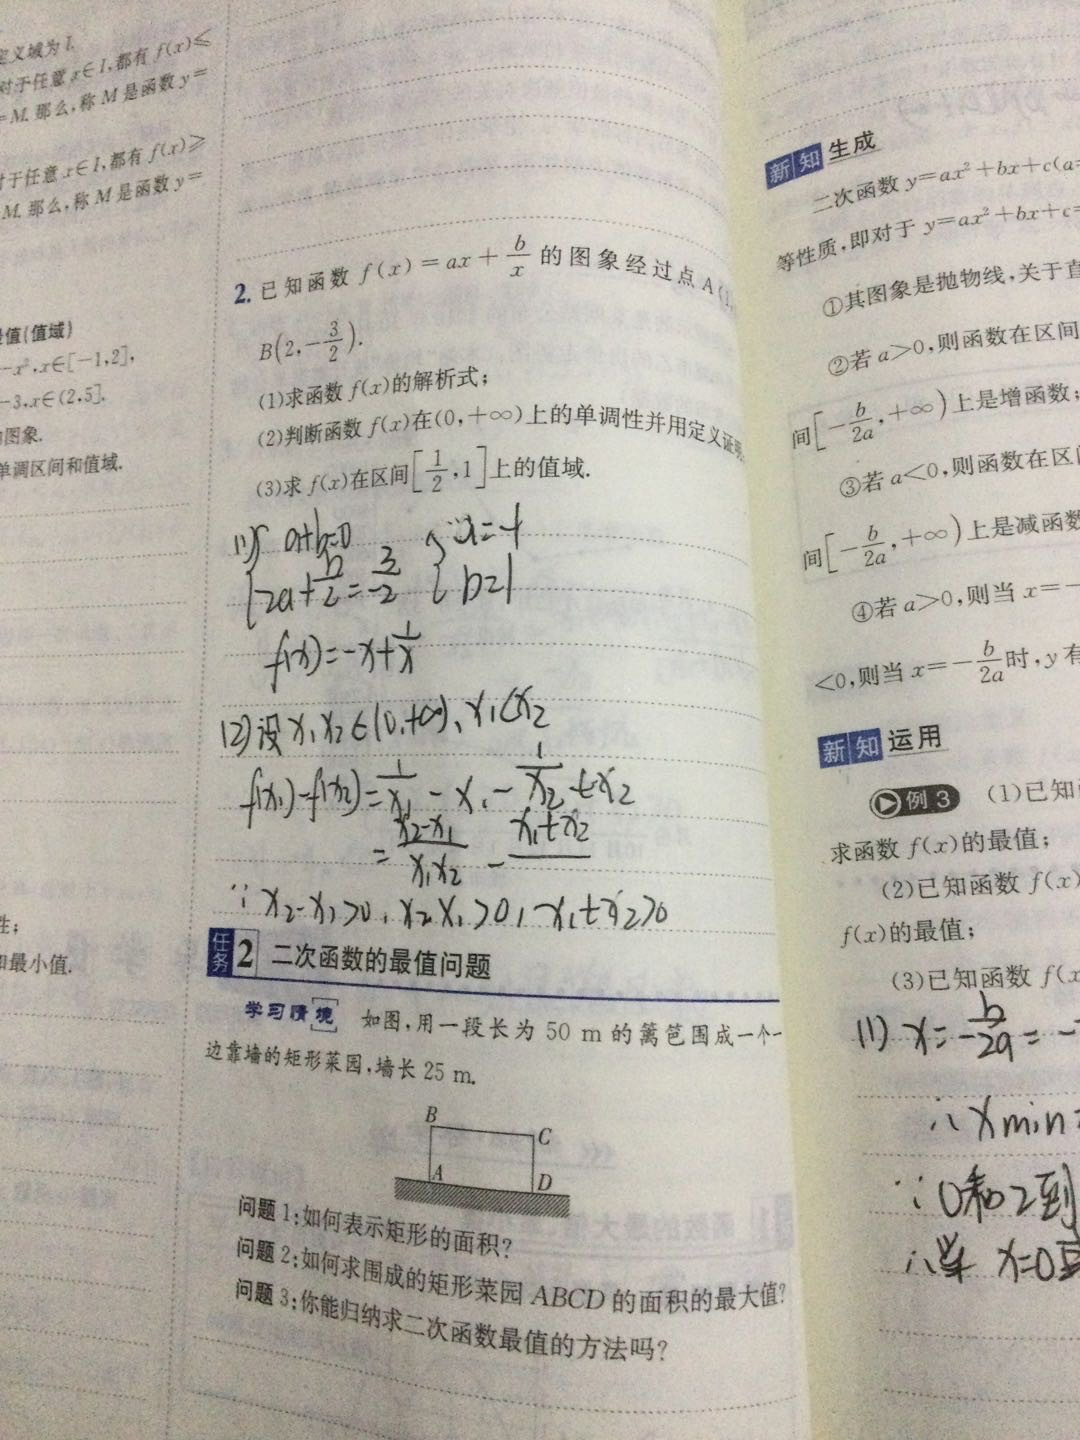 定义域为 I.
对于任意 x∈I,都有 f(x)≤
=M.那么,称 M 是函数 y=
对于任意 x∈I,都有 f(x)≥
M.那么,称 M 是函数 y=
值(值域)
-x²,x∈[-1,2],
-3,x∈(2,5].
图象.
单调区间和值域.
性;
和最小值.
2. 已知函数 f(x)=ax+b/x 的图象经过点 A(1,
B(2,-3/2).
(1)求函数 f(x)的解析式;
(2)判断函数 f(x)在(0,+∞)上的单调性并用定义证明;
(3)求 f(x)在区间[1/2,1]上的值域.
(1){ a+b=0 { a=-1
{ 2a+b/2=3/-2 { b=1
f(x)=-x+1/x
(2)设 x₁x₂∈(0,+∞),x₁<x₂
f(x₁)-f(x₂)=1/x₁-x₁-1/x₂+x₂
=x₂-x₁/x₁x₂ - x₁+x₂
∵x₂-x₁>0,x₂x₁>0,-x₁+x₂>0
任务 2 二次函数的最值问题
学习情境 如图,用一段长为 50 m 的篱笆围成一个一
边靠墙的矩形菜园,墙长 25 m.
B
C
A
D
问题 1:如何表示矩形的面积?
问题 2:如何求围成的矩形菜园 ABCD 的面积的最大值?
问题 3:你能归纳求二次函数最值的方法吗?
新知 生成
二次函数 y=ax²+bx+c(a
等性质,即对于 y=ax²+bx+c=
①其图象是抛物线,关于直
②若 a>0,则函数在区间
间[-b/2a,+∞)上是增函数;
③若 a<0,则函数在区间
间[-b/2a,+∞)上是减函数
④若 a>0,则当 x=-
<0,则当 x=-b/2a时,y 有
新知 运用
例 3 (1)已知
求函数 f(x)的最值;
(2)已知函数 f(x)
f(x)的最值;
(3)已知函数 f(x
(1) x=-b/2a=-
∴xmin=
∵0和2到
∴当 x=0